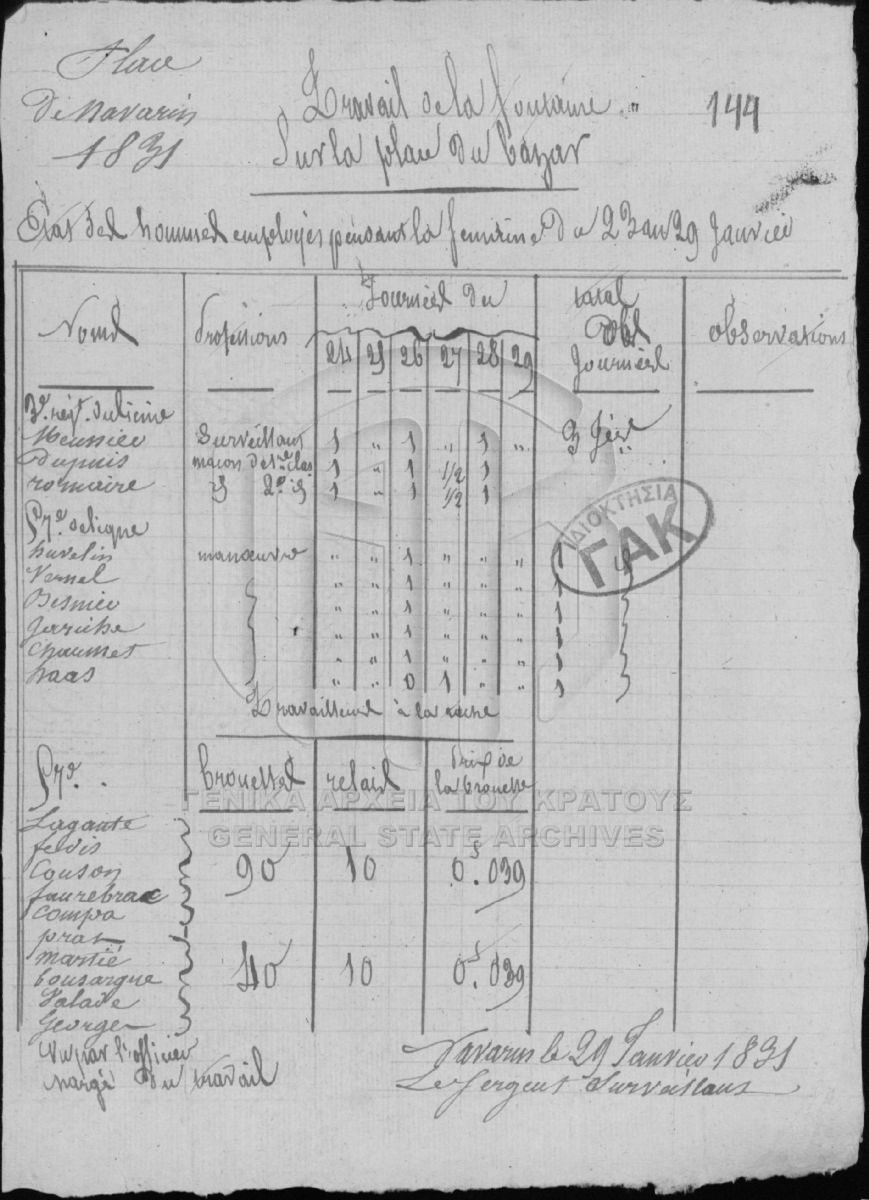 Place
De Navarin
1831
Travail de la fontaine "
Sur la place du Bazar
144
Etat des hommes employés pendant la semaine du 23 au 29 Janvier
Noms
Professions
Journées du
24 25 26 27 28 29
total
des
Journées
observations
3e. régt. du Génie
Meunier Surveillant 1 " 1 " 1 " 3 Jées
Dupuis maçon de 1re clas 1 " 1 1/2 1
romaire id 2e id 1 " 1 1/2 1
57e. de ligne
huvelin manœuvre " " 1 " " " 1
Vernel " " 1 " " " 1
Besnier " " 1 " " " 1
Jerriche " " 1 " " " 1
Chaumet " " 1 " " " 1
haas " " 0 1 " " 1
Travailleurs à la tache
57e.
brouettes
relais
Prix de
la brouette
Lagante
fedis
Couson
faurebrac
Compa
90 10 0f. 039
prat
martié
bousargue
Valade
George
40 10 0f. 039
Vu par l'officier
chargé du travail
Navarin le 29 Janvier 1831
Le Sergent Surveillant
ΙΔΙΟΚΤΗΣΙΑ
ΓΑΚ
ΓΕΝΙΚΑ ΑΡΧΕΙΑ ΤΟΥ ΚΡΑΤΟΥΣ
GENERAL STATE ARCHIVES